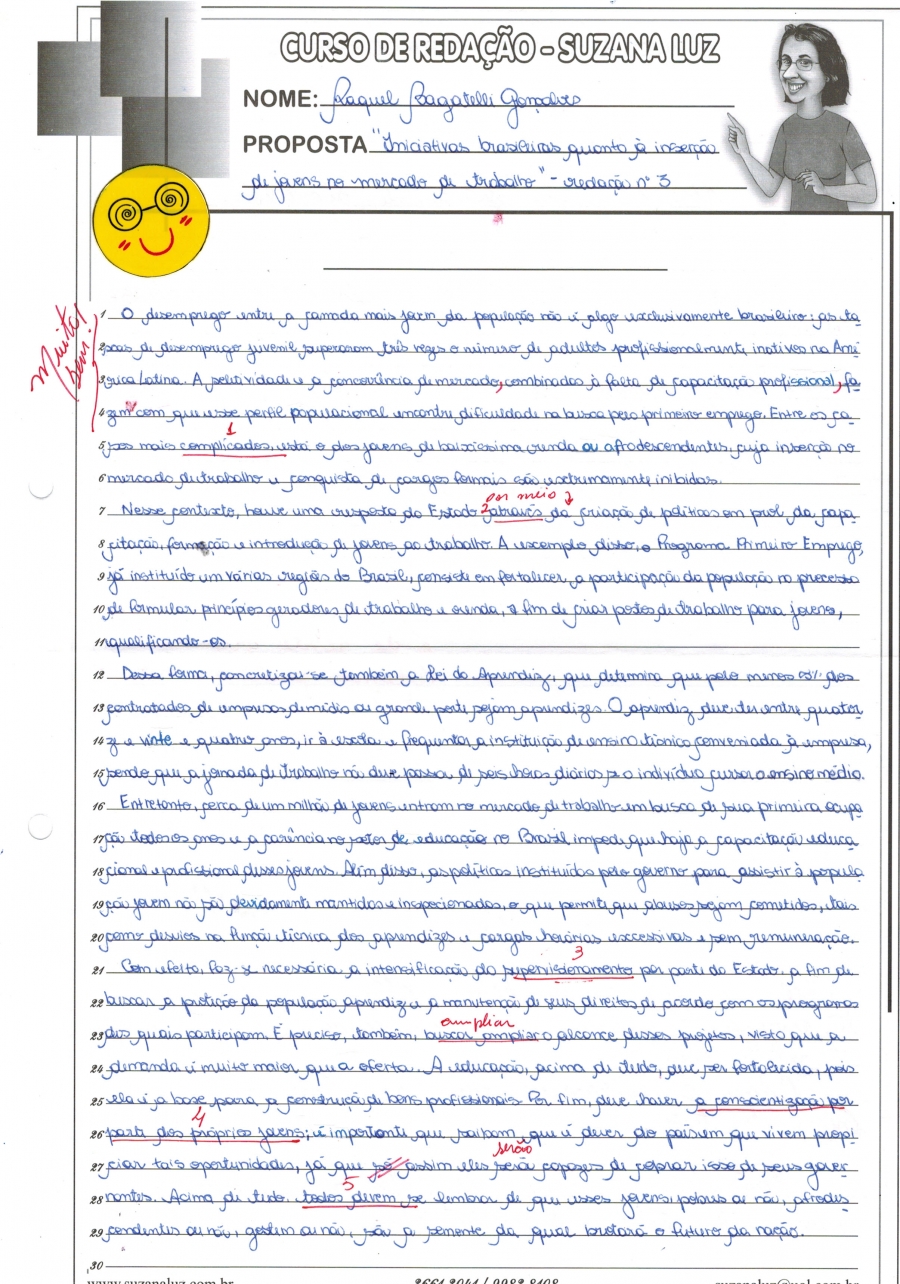 CURSO DE REDAÇÃO - SUZANA LUZ
NOME: Raquel Bagatelli Gonçalves
PROPOSTA "Iniciativas brasileiras quanto à inserção
de jovens no mercado de trabalho" - redação nº 3
Muito bem!
1 O desemprego entre a camada mais jovem da população não é algo exclusivamente brasileiro: as ta
2 xas de desemprego juvenil superaram três vezes o número de adultos profissionalmente inativos na Amé
3 rica Latina. A seletividade e a concorrência de mercado, combinadas à falta de capacitação profissional, fa
4 zem com que esse perfil populacional encontre dificuldade na busca pelo primeiro emprego. Entre os ca
1
5 sos mais complicados, está o dos jovens de baixíssima renda ou afrodescendentes, cuja inserção no
6 mercado de trabalho e conquista de cargos formais são extremamente inibidas.
por meio
7 Nesse contexto, houve uma resposta do Estado 2 através da criação de políticas em prol da capa
8 citação, formação e introdução de jovens ao trabalho. A exemplo disso, o Programa Primeiro Emprego,
9 já instituído em várias regiões do Brasil, consiste em fortalecer a participação da população no processo
10 de formular princípios geradores de trabalho e renda, a fim de criar postos de trabalho para jovens,
11 qualificando-os.
12 Dessa forma, concretizou-se também a Lei do Aprendiz, que determina que pelo menos 05% dos
13 contratados de empresas de médio ou grande porte sejam aprendizes. O aprendiz deve ter entre quator
14 ze e vinte e quatro anos, ir à escola e frequentar a instituição de ensino técnico conveniada à empresa,
15 sendo que a jornada de trabalho não deve passar de seis horas diárias se o indivíduo cursar o ensino médio.
16 Entretanto, cerca de um milhão de jovens entram no mercado de trabalho em busca de sua primeira ocupa
17 ção todos os anos e a carência no setor de educação no Brasil impede que haja a capacitação educa
18 cional e profissional desses jovens. Além disso, as políticas instituídas pelo governo para assistir à popula
19 ção jovem não são devidamente mantidas e inspecionadas, o que permite que abusos sejam cometidos, tais
20 como desvios na função técnica dos aprendizes e cargas horárias excessivas e sem remuneração.
3
21 Com efeito, faz-se necessária a intensificação do supervisionamento por parte do Estado, a fim de
22 buscar a proteção da população aprendiz e a manutenção de seus direitos de acordo com os programas
ampliar
23 dos quais participam. É preciso, também, buscar ampliar o alcance desses projetos, visto que a
24 demanda é muito maior que a oferta. A educação, acima de tudo, deve ser fortalecida, pois
25 ela é a base para a construção de bons profissionais. Por fim, deve haver a conscientização por
4
26 parte dos próprios jovens; é importante que saibam que é dever do país em que vivem propi
serão
27 ciar tais oportunidades, já que só assim eles será capazes de cobrar isso de seus gover
5
28 nantes. Acima de tudo, todos devem se lembrar de que esses jovens, pobres ou não, afrodes
29 cendentes ou não, gostem ou não, são a semente da qual brotará o futuro da nação.
30
www.suzanaluz.com.br 3661.2041 / 9982.8108 suzanaluz@uol.com.br